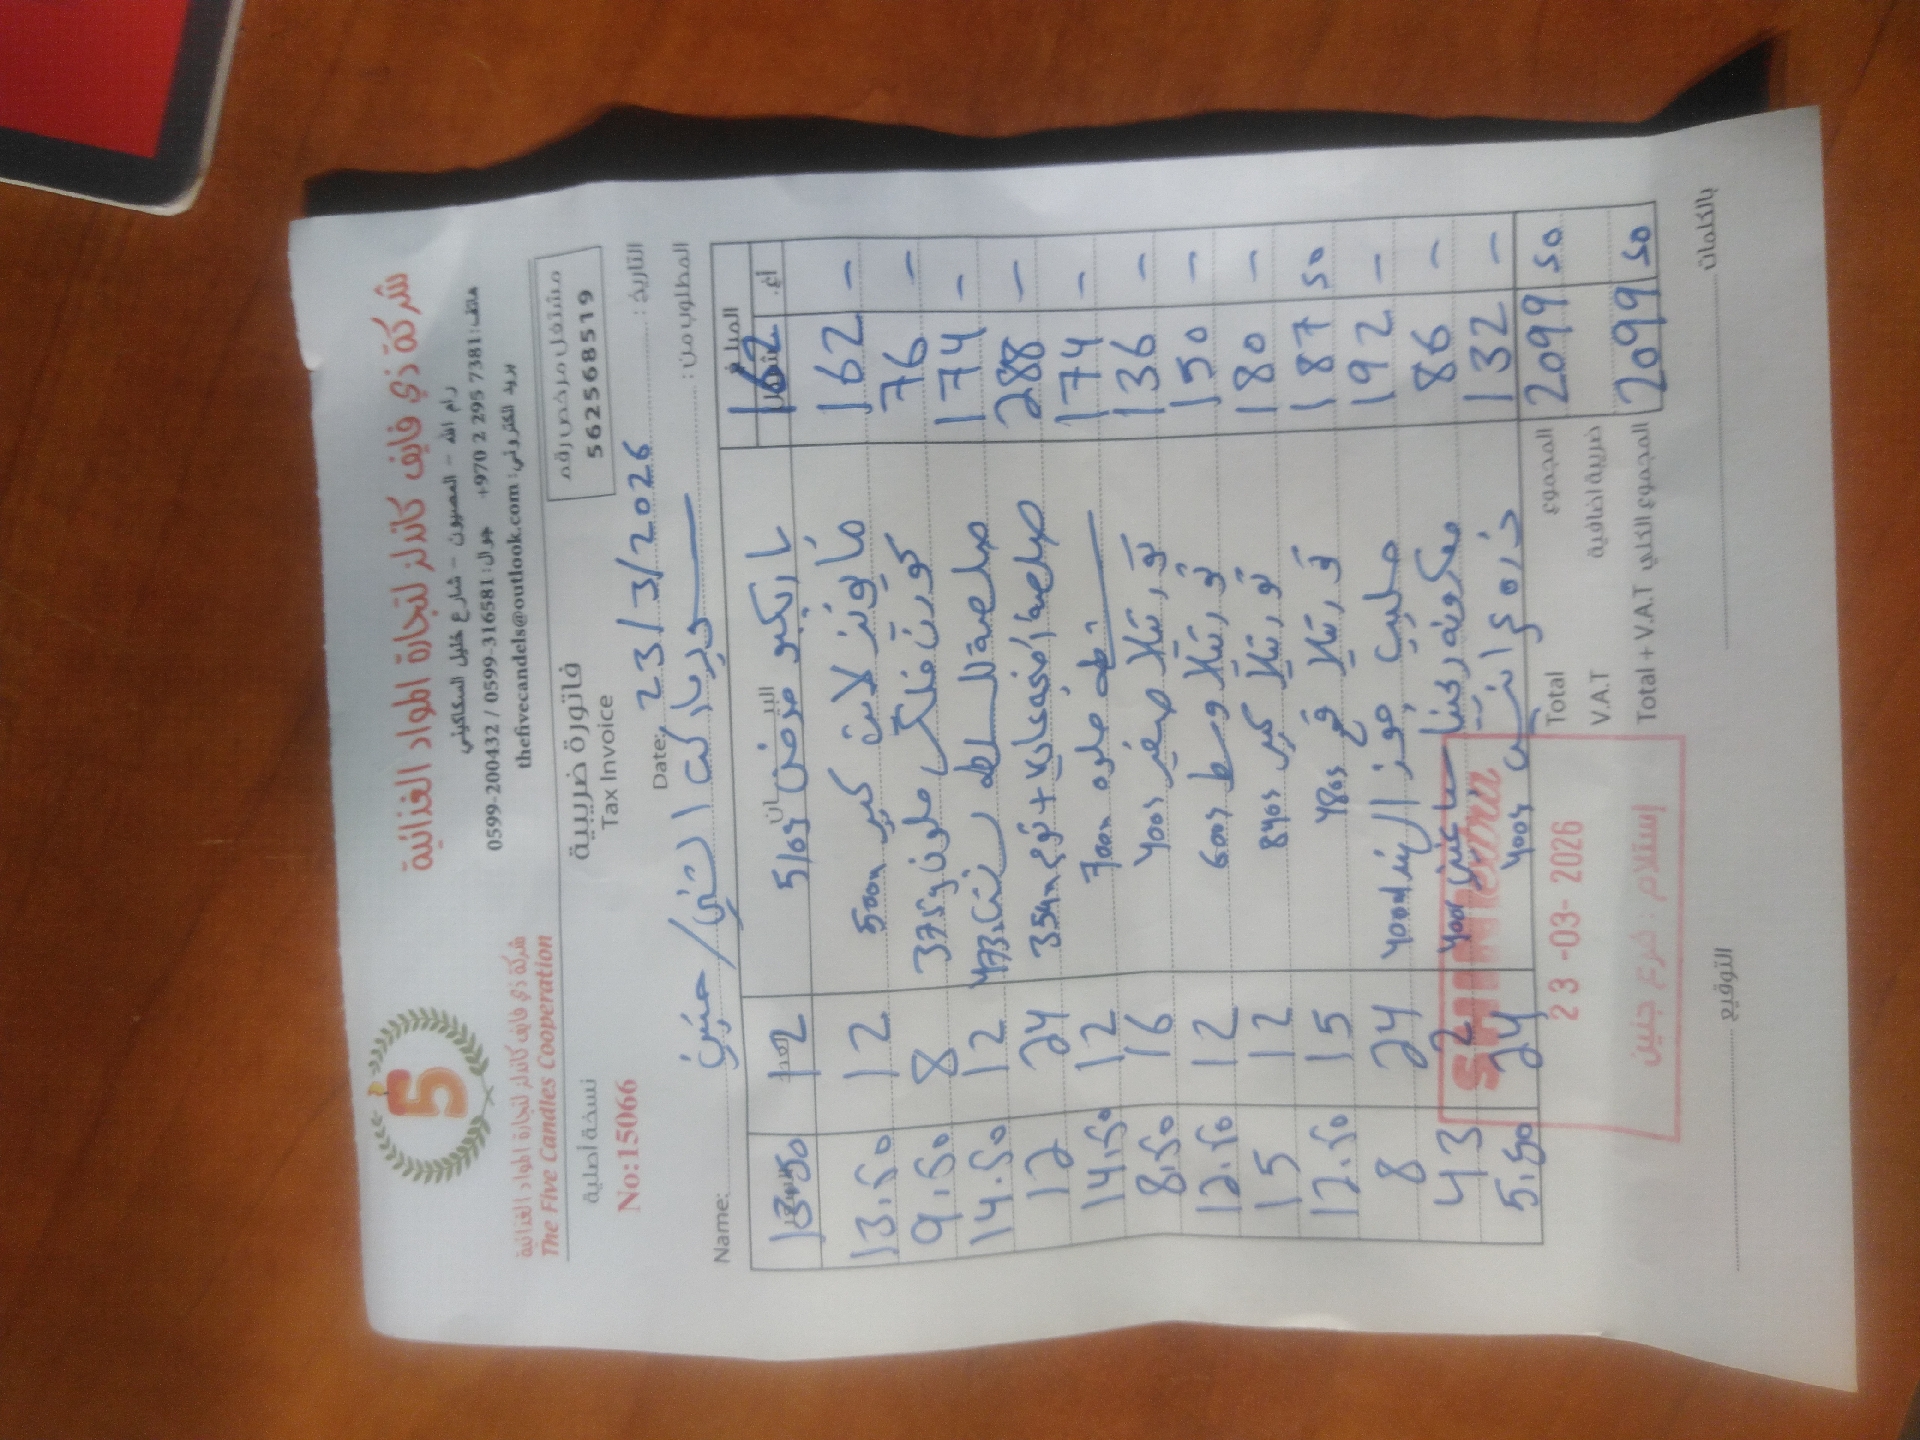 شركة ذي فايف كاندلز لتجارة المواد الغذائية
رام الله - المصيون - شارع خليل السكاكيني
هاتف: +970 2 295 7381 جوال: 0599-200432 / 0599-316581
بريد الكتروني: thefivecandels@outlook.com
5
شركة ذي فايف كاندلز لتجارة المواد الغذائية
The Five Candles Cooperation
مشتغل مرخص رقم
562568519
فاتورة ضريبية
Tax Invoice
نسخة أصلية
No:15066
التاريخ: 23/3/2026 Date:
المطلوب من: سوبر ماركت الشني / جنين Name:
المبلغ
162 510g 12 13.50
162 - مايونيز لايت كبير 500m 12 13.50
76 - كورن فلكس ملون 375g 8 9.50
174 - صلصة 473 12 14.50
288 - صلصة 354m 24 12
174 - 700m 12 14.50
136 - تورتيلا صغير 400g 16 8.50
150 - تورتيلا وسط 600g 12 12.50
180 - تورتيلا كبير 840g 12 15
187 50 تورتيلا قمح 480g 15 12.50
192 - حليب جوز الهند 400m 24 8
86 - معكرونة 400g 2 43
132 - ذرة 400g 24 5.50
2099 50 المجموع Total
ضريبة اضافية V.A.T
2099 50 المجموع الكلي Total + V.A.T
بالكلمات
التوقيع
SHINI extra
23-03-2026
إستلام : فرع جنين